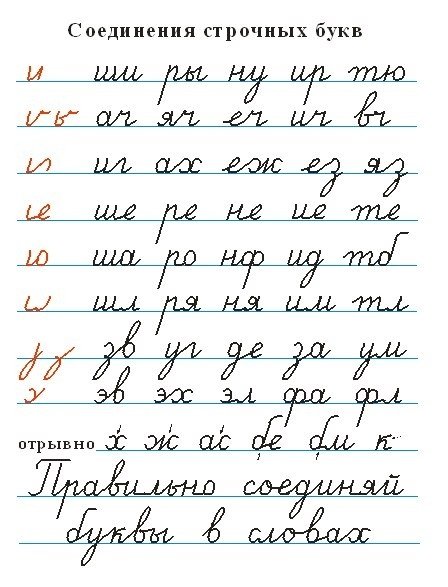 Соединения строчных букв
и ши ры ну ир тю
ач яч еч ич вч
иг ах еж ез яз
ше ре не ие те
ша ро нф ид тб
шл ря ня им тл
зв уг де за ум
эв эх эл фа фл
отрывно х ж ас бе би к
Правильно соединяй
буквы в словах